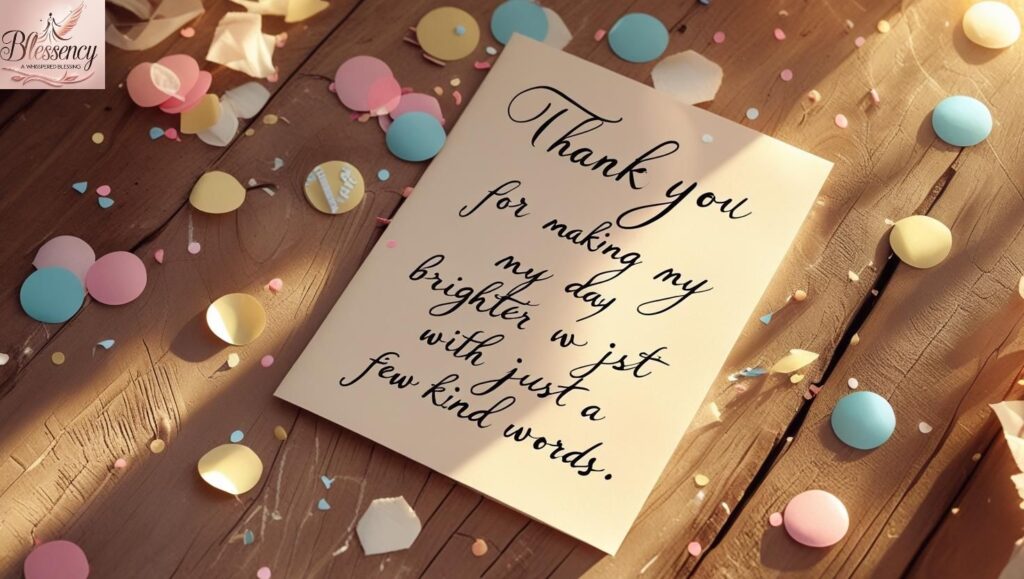 Blessency
A WHISPERED BLESSING
Thank you
for making my
my day
brighter w jst
with just a
few kind words.